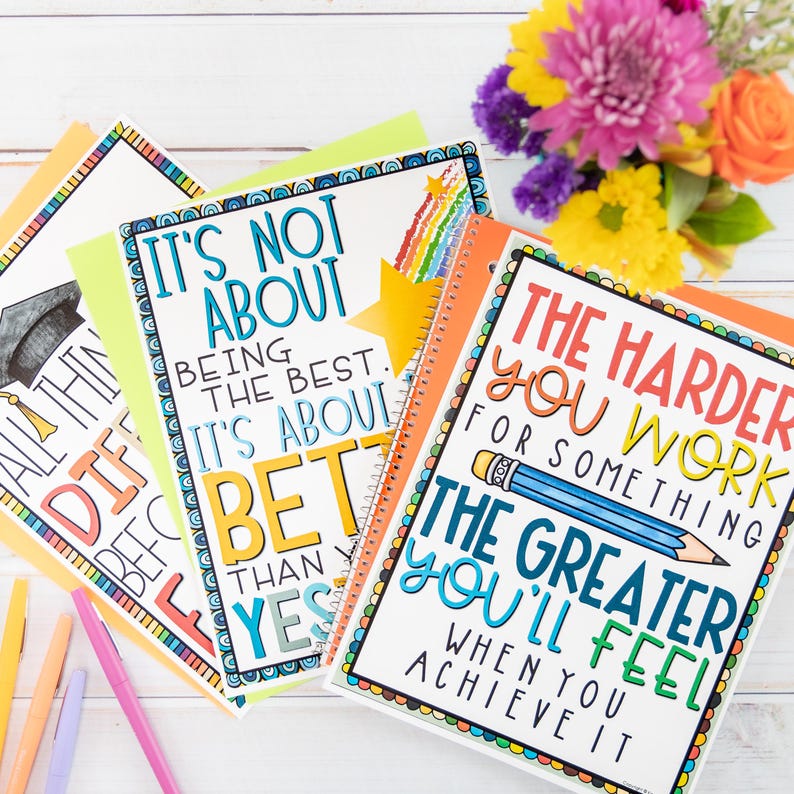 ALL THIN
DIFF
BEFO
IT'S NOT
ABOUT
BEING
THE BEST.
IT'S ABOUT
BETT
THAN Y
YEST
THE HARDER
YOU WORK
FOR SOMETHING
THE GREATER
YOU'LL FEEL
WHEN YOU
ACHIEVE IT